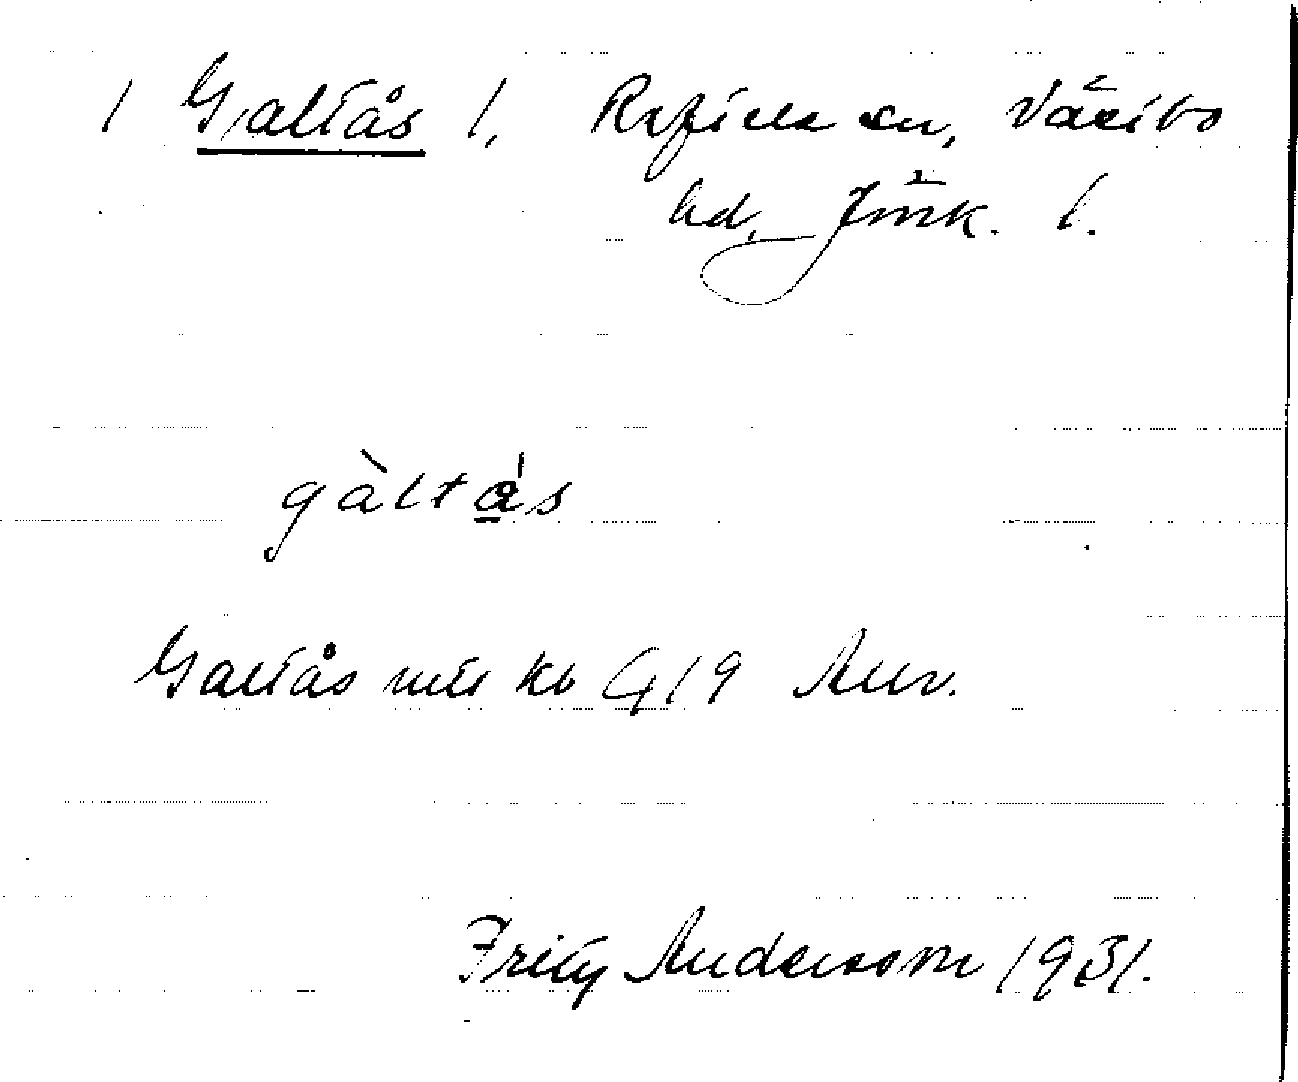 1 Galtås 1, Reftele sn, Västbo
hd, Jönk. l.
gàltå's
Galtås mtl kb G19 Anv.
Fritz Andersson 1931.